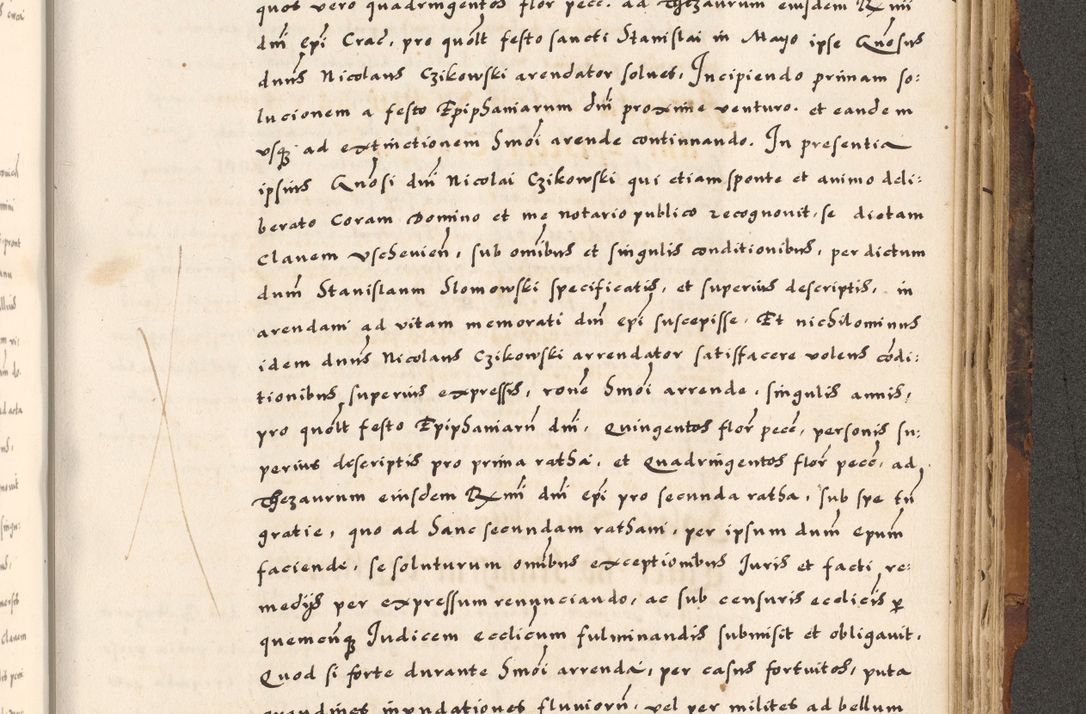 quos vero quadringentos flor pecc. ad Thezaurum eiusdem Rmi
dni Epi Crac, pro quolt festo sancti Stanislai in Mayo ipse Gnosus
dnus Nicolaus Czikowski arendator solvet, Incipiendo primam so:
lucionem a festo Epiphaniarum dni proxime venturo. et eandem
usq ad extinctionem hmoi arende continuando. In presentia
ipsius Gnosi dni Nicolai Czikowski qui etiam sponte et animo deli:
berato Coram Domino et me notario publico recognovit, se dictam
Clavem Uschevien, sub omibus et singulis conditionibus, per dictum
dnum Stanislaum Slomowski specificatis, et superius descriptis, in
arendam ad vitam memorati dni epi suscepisse. Et nichilominus
idem dnus Nicolaus Czikowski arrendator satisfacere volens codi:
tionibus superius expressis, rone hmoi arrende, singulis annis,
pro quolt festo Epiphaniaru dni, Quingentos flor pecc, personis su:
perius descriptis pro prima ratha, et Quadringentos flor pecc, ad
Thezaurum eiusdem Rmi dni epi pro secunda ratha, sub spe tn
gratie, quo ad hanc secundam ratham, per ipsum dnum Epum
faciende, se soluturum omibus exceptionibus Juris et facti, re:
medijs per expressum renunciando, ac sub censuris ecclicis p
quemcunq Judicem ecclicum fulminandis submisit et obligavit.
Quod si forte durante hmoi arrenda, per casus fortuitos, puta
grandines inundationes fluvioru, vel per milites ad bellum